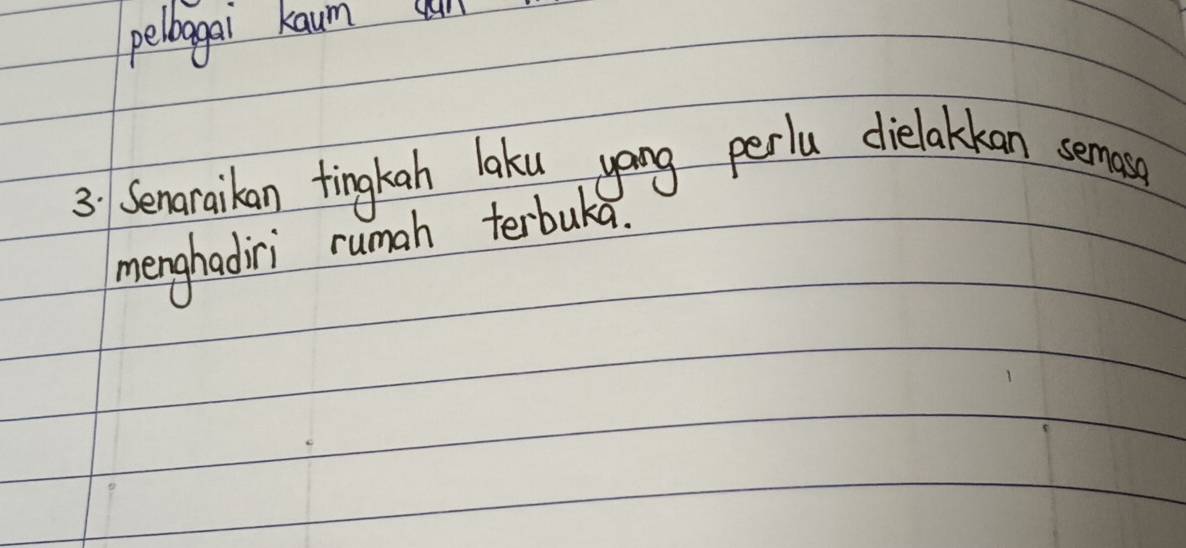 pelbagai kaum dan
3. Senaraikan tingkah laku yang perlu dielakkan semasa
menghadiri rumah terbuka.